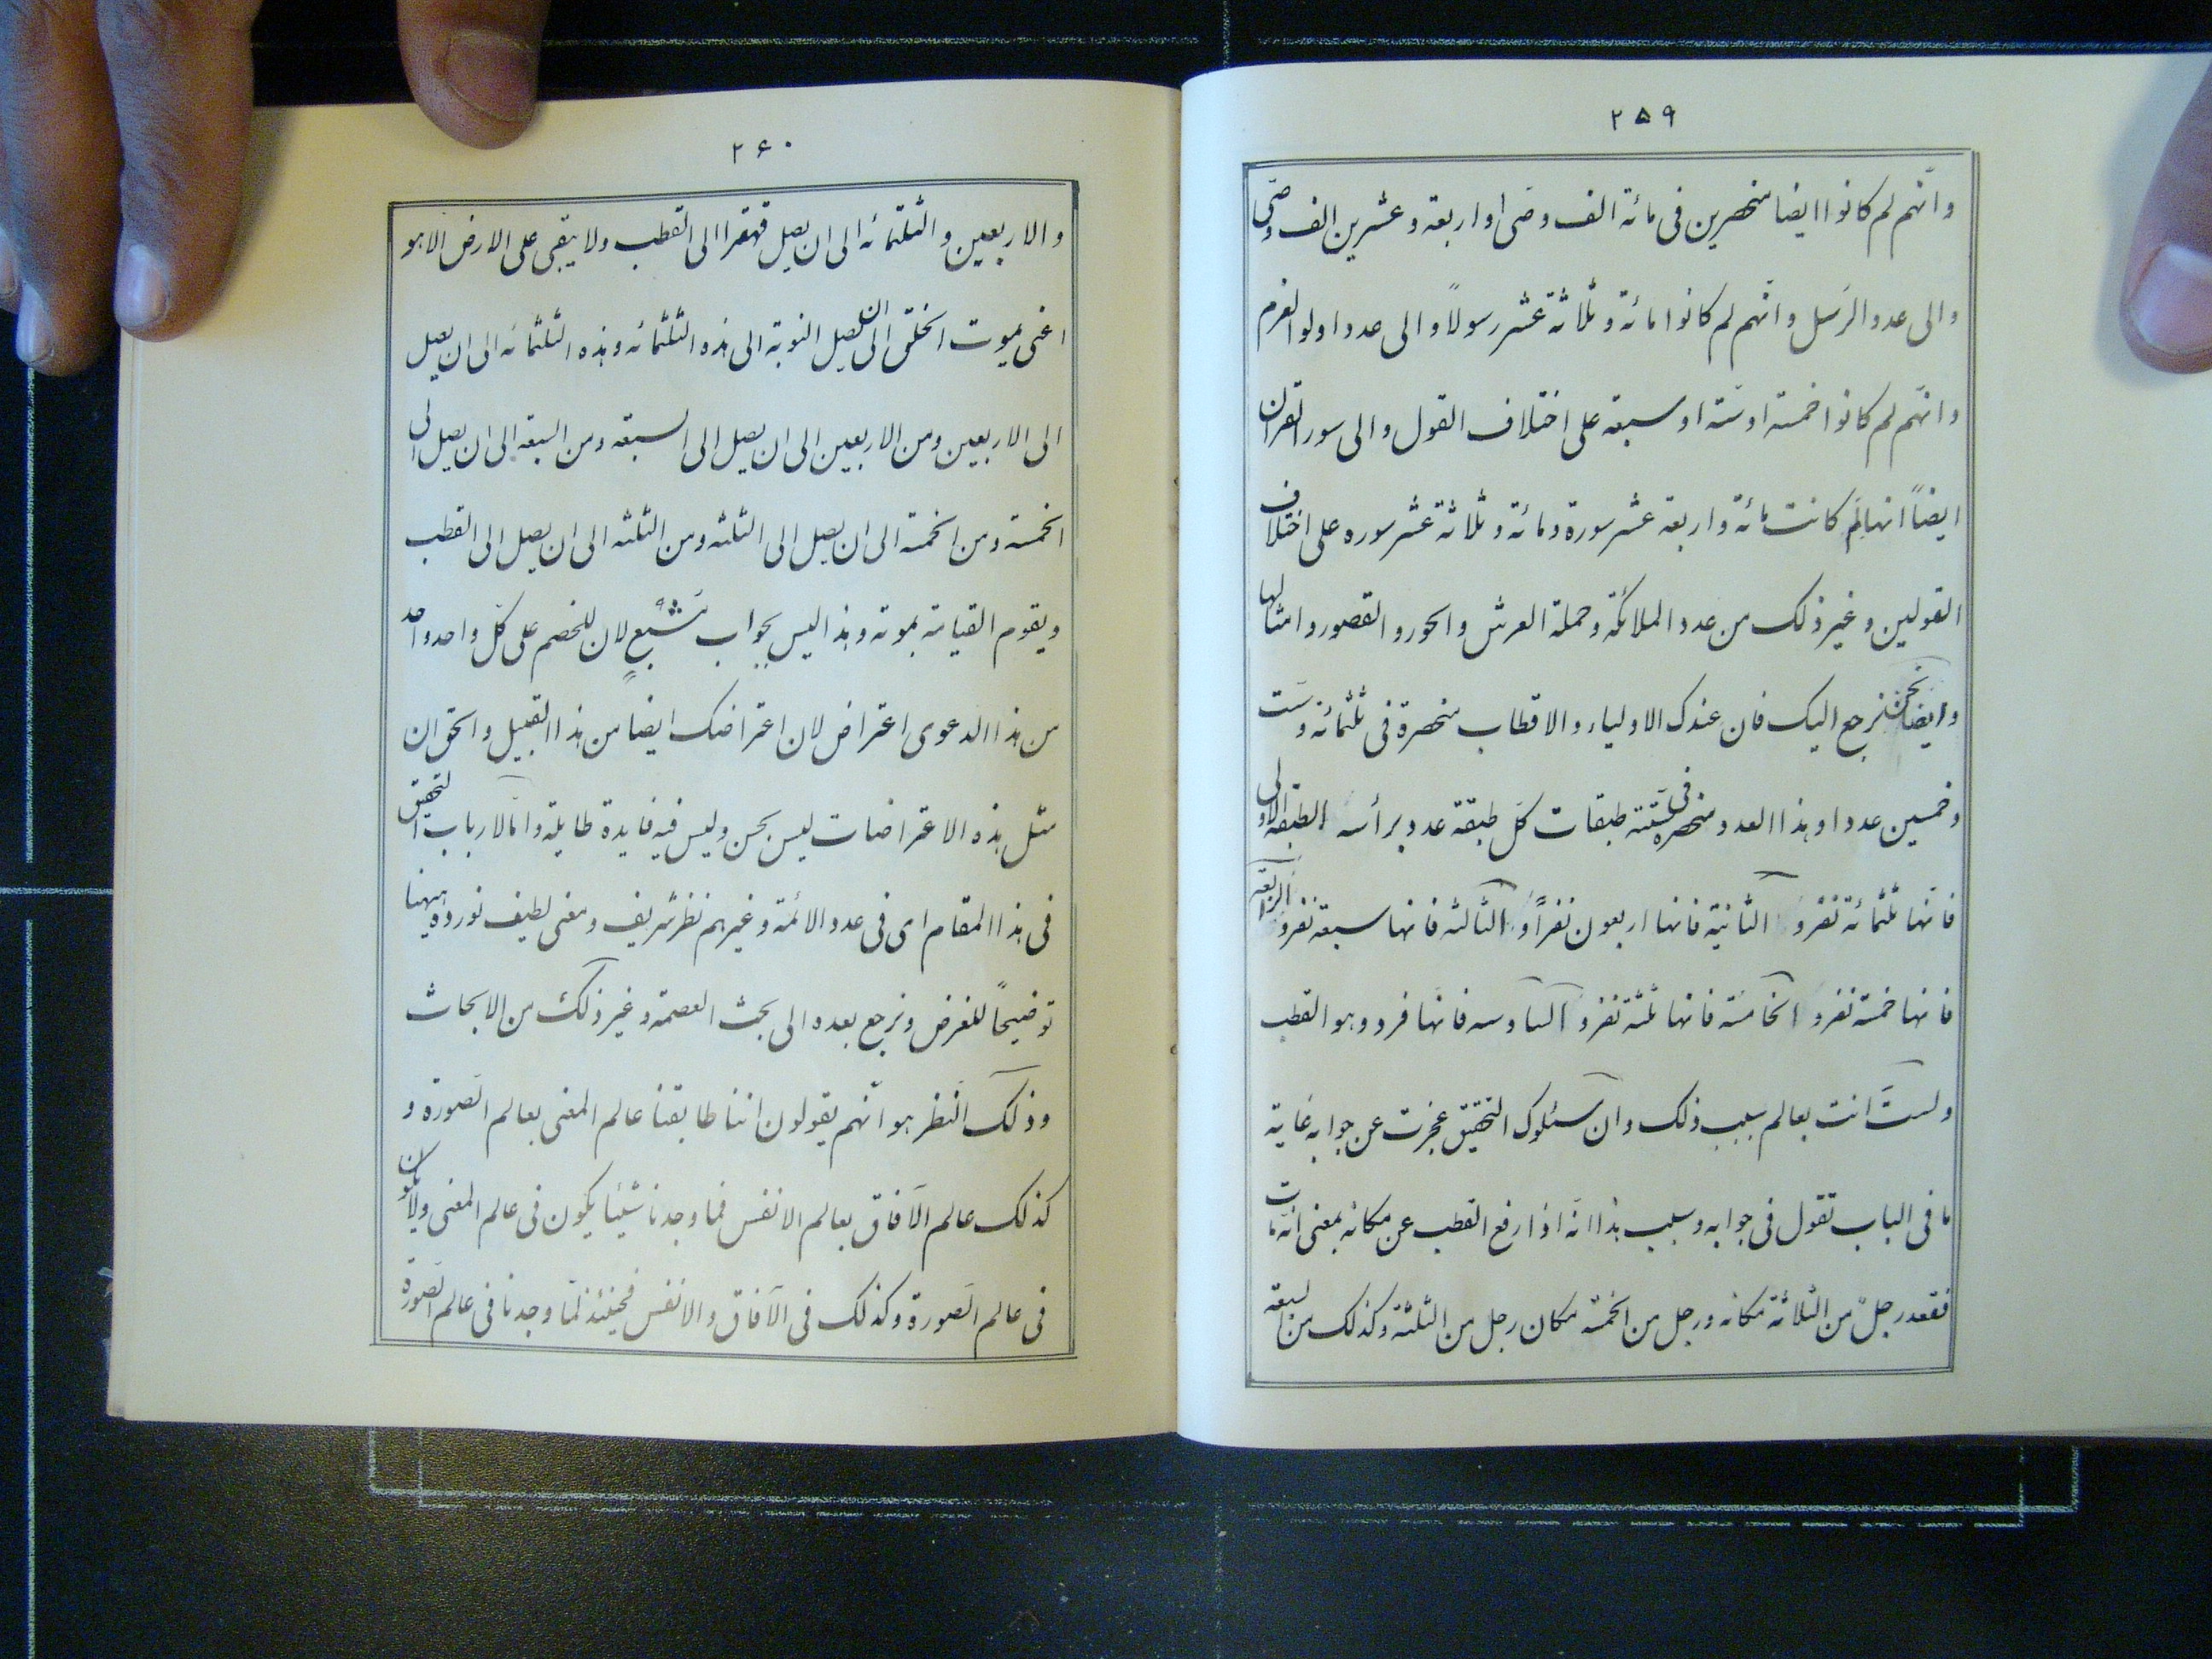 ۲۵۹
وانّهم لم كانوا ايضا منحصرين فى مائة الف وصّى او اربعة وعشرين الف وصّى
والى عدد الرّسل وانّهم لم كانوا مائة وثلاثة عشر رسولاً والى عدد اولو العزم
وانّهم لم كانوا خمسة او ستّة او سبعة على اختلاف القول والى سور القرآن
ايضاً انها لم كانت مائة واربعة عشر سورة ومائة وثلاثة عشر سوره على اختلاف
القولين وغير ذلك من عدد الملائكة وحملة العرش والحور والقصور وامثالها
وايضا نحن نرجع اليك فان عندك الاولياء والاقطاب منحصرة فى ثلثمائة وستّ
وخمسين عددا وهذا العدد منحصرة فى ستّة طبقات كلّ طبقة عدد برأسه الطبقة الاولى
فانّها ثلثمائة نفر و الثانية فانها اربعون نفراً و الثالثه فانها سبعة نفر و الرّابعة
فانها خمسة نفر و الخامسة فانها ثلثة نفر و السادسه فانّها فرد وهو القطب
ولستَ انت بعالم بسبب ذلك وان سئلوك التحقيق عجزت عن جوابه غاية
ما فى الباب تقول فى جوابه وسبب هذا انّه اذا رفع القطب عن مكانه بمعنى انّه مات
فقعد رجلٌ من الثلاثة مكانه ورجل من الخمسة مكان رجل من الثلثة وكذلك من السبعة
۲۶۰
والاربعين والثلثمائه الى ان يصل قهقرا الى القطب ولا يبقى على الارض الا هو
اعنى يموت الخلق الى ان يصل النوبة الى هذه الثلثمائه وهذه الثلثمائه الى ان يصل
الى الاربعين ومن الاربعين الى ان يصل الى السبعه ومن السبعه الى ان يصل الى
الخمسة ومن الخمسة الى ان يصل الى الثلثه ومن الثلثه الى ان يصل الى القطب
ويقوم القيامة بموته وهذا ليس بجواب مشبعٍ لان للخصم على كلّ واحد واحد
من هذا الدعوى اعتراض لان اعتراضك ايضا من هذا القبيل والحق ان
مثل هذه الاعتراضات ليس بحسن وليس فيه فايدة طايلة وامّا لارباب التحقيق
فى هذا المقام اى فى عدد الائمّة وغيرهم نظر شريف ومعنى لطيف نورده ههنا
توضيحاً للغرض ونرجع بعده الى بحث العصمة وغير ذلك من الابحاث
وذلك النّظر هو انّهم يقولون اننا طابقنا عالم المعنى بعالم الصّورة و
كذلك عالم الآفاق بعالم الانفس فما وجدنا شيئا يكون فى عالم المعنى ولا يكون
فى عالم الصّورة وكذلك فى الآفاق والانفس فحينئذ لمّا وجدنا فى عالم الصّورة